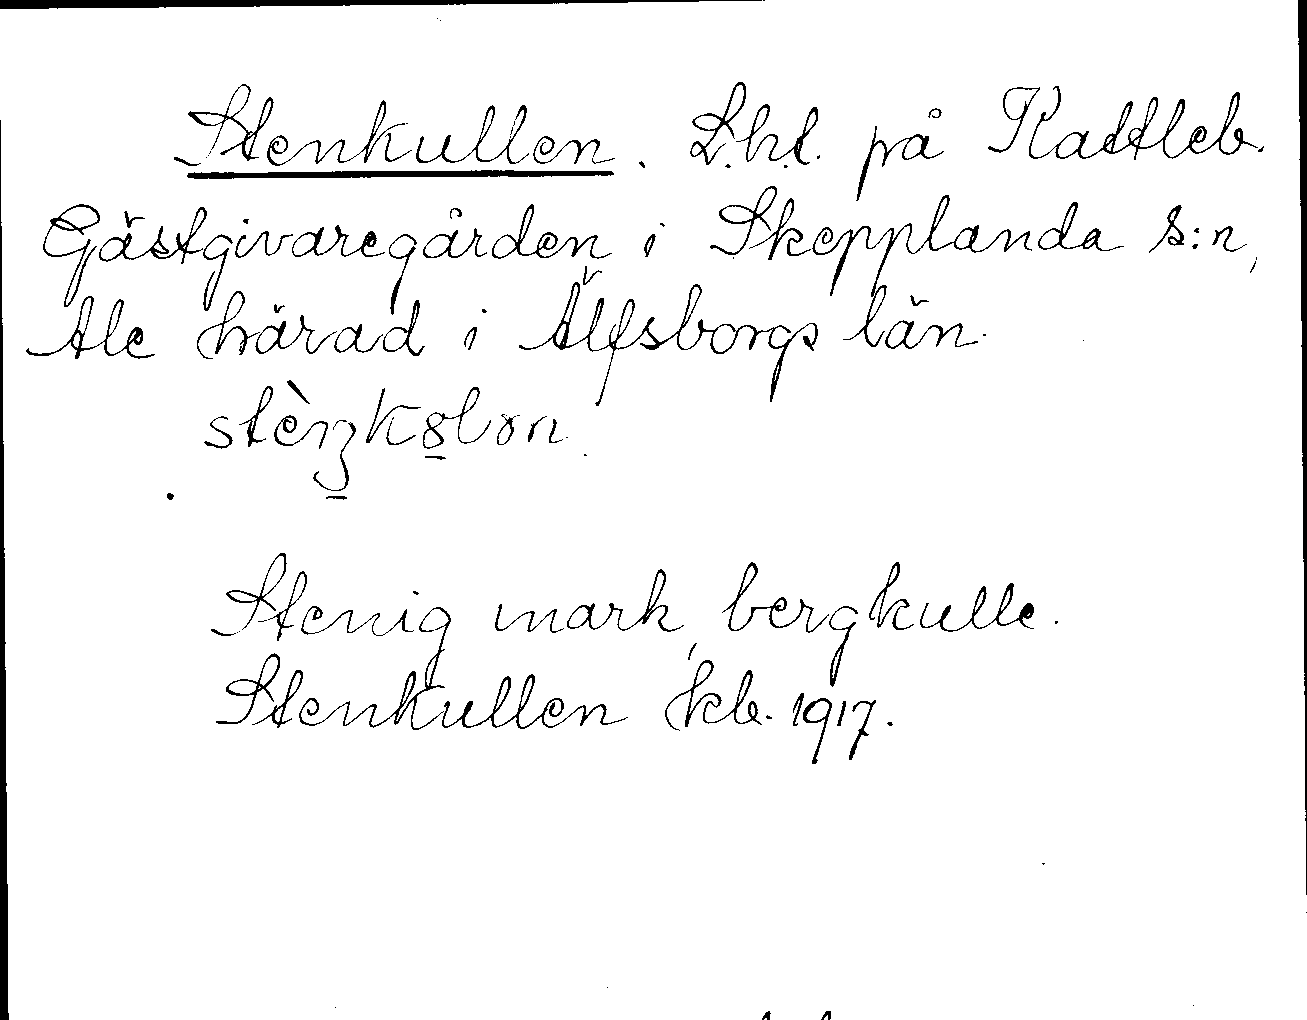 Stenkullen. L.h.t. på Kattleb.
Gästgivaregården i Skepplanda s:n,
Ale härad i Älfsborgs län.
Stenig mark, bergkulle.
Stenkullen kb. 1917.